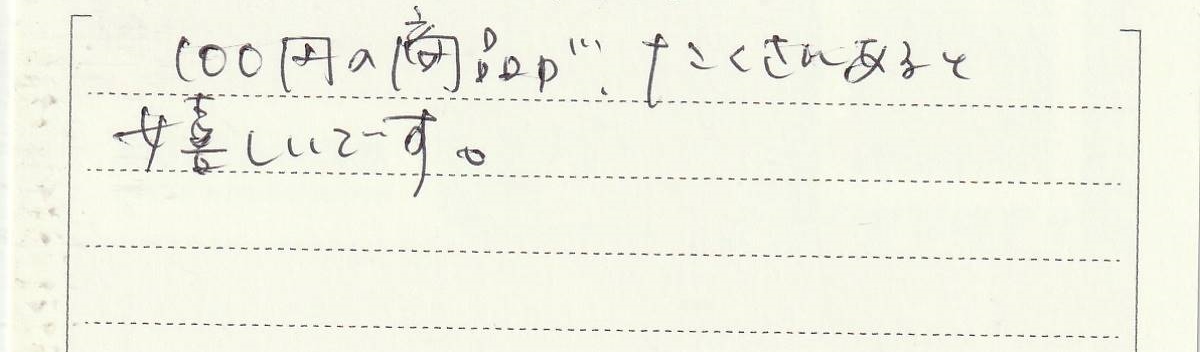 100円の商品が、たくさんあると
嬉しいです。